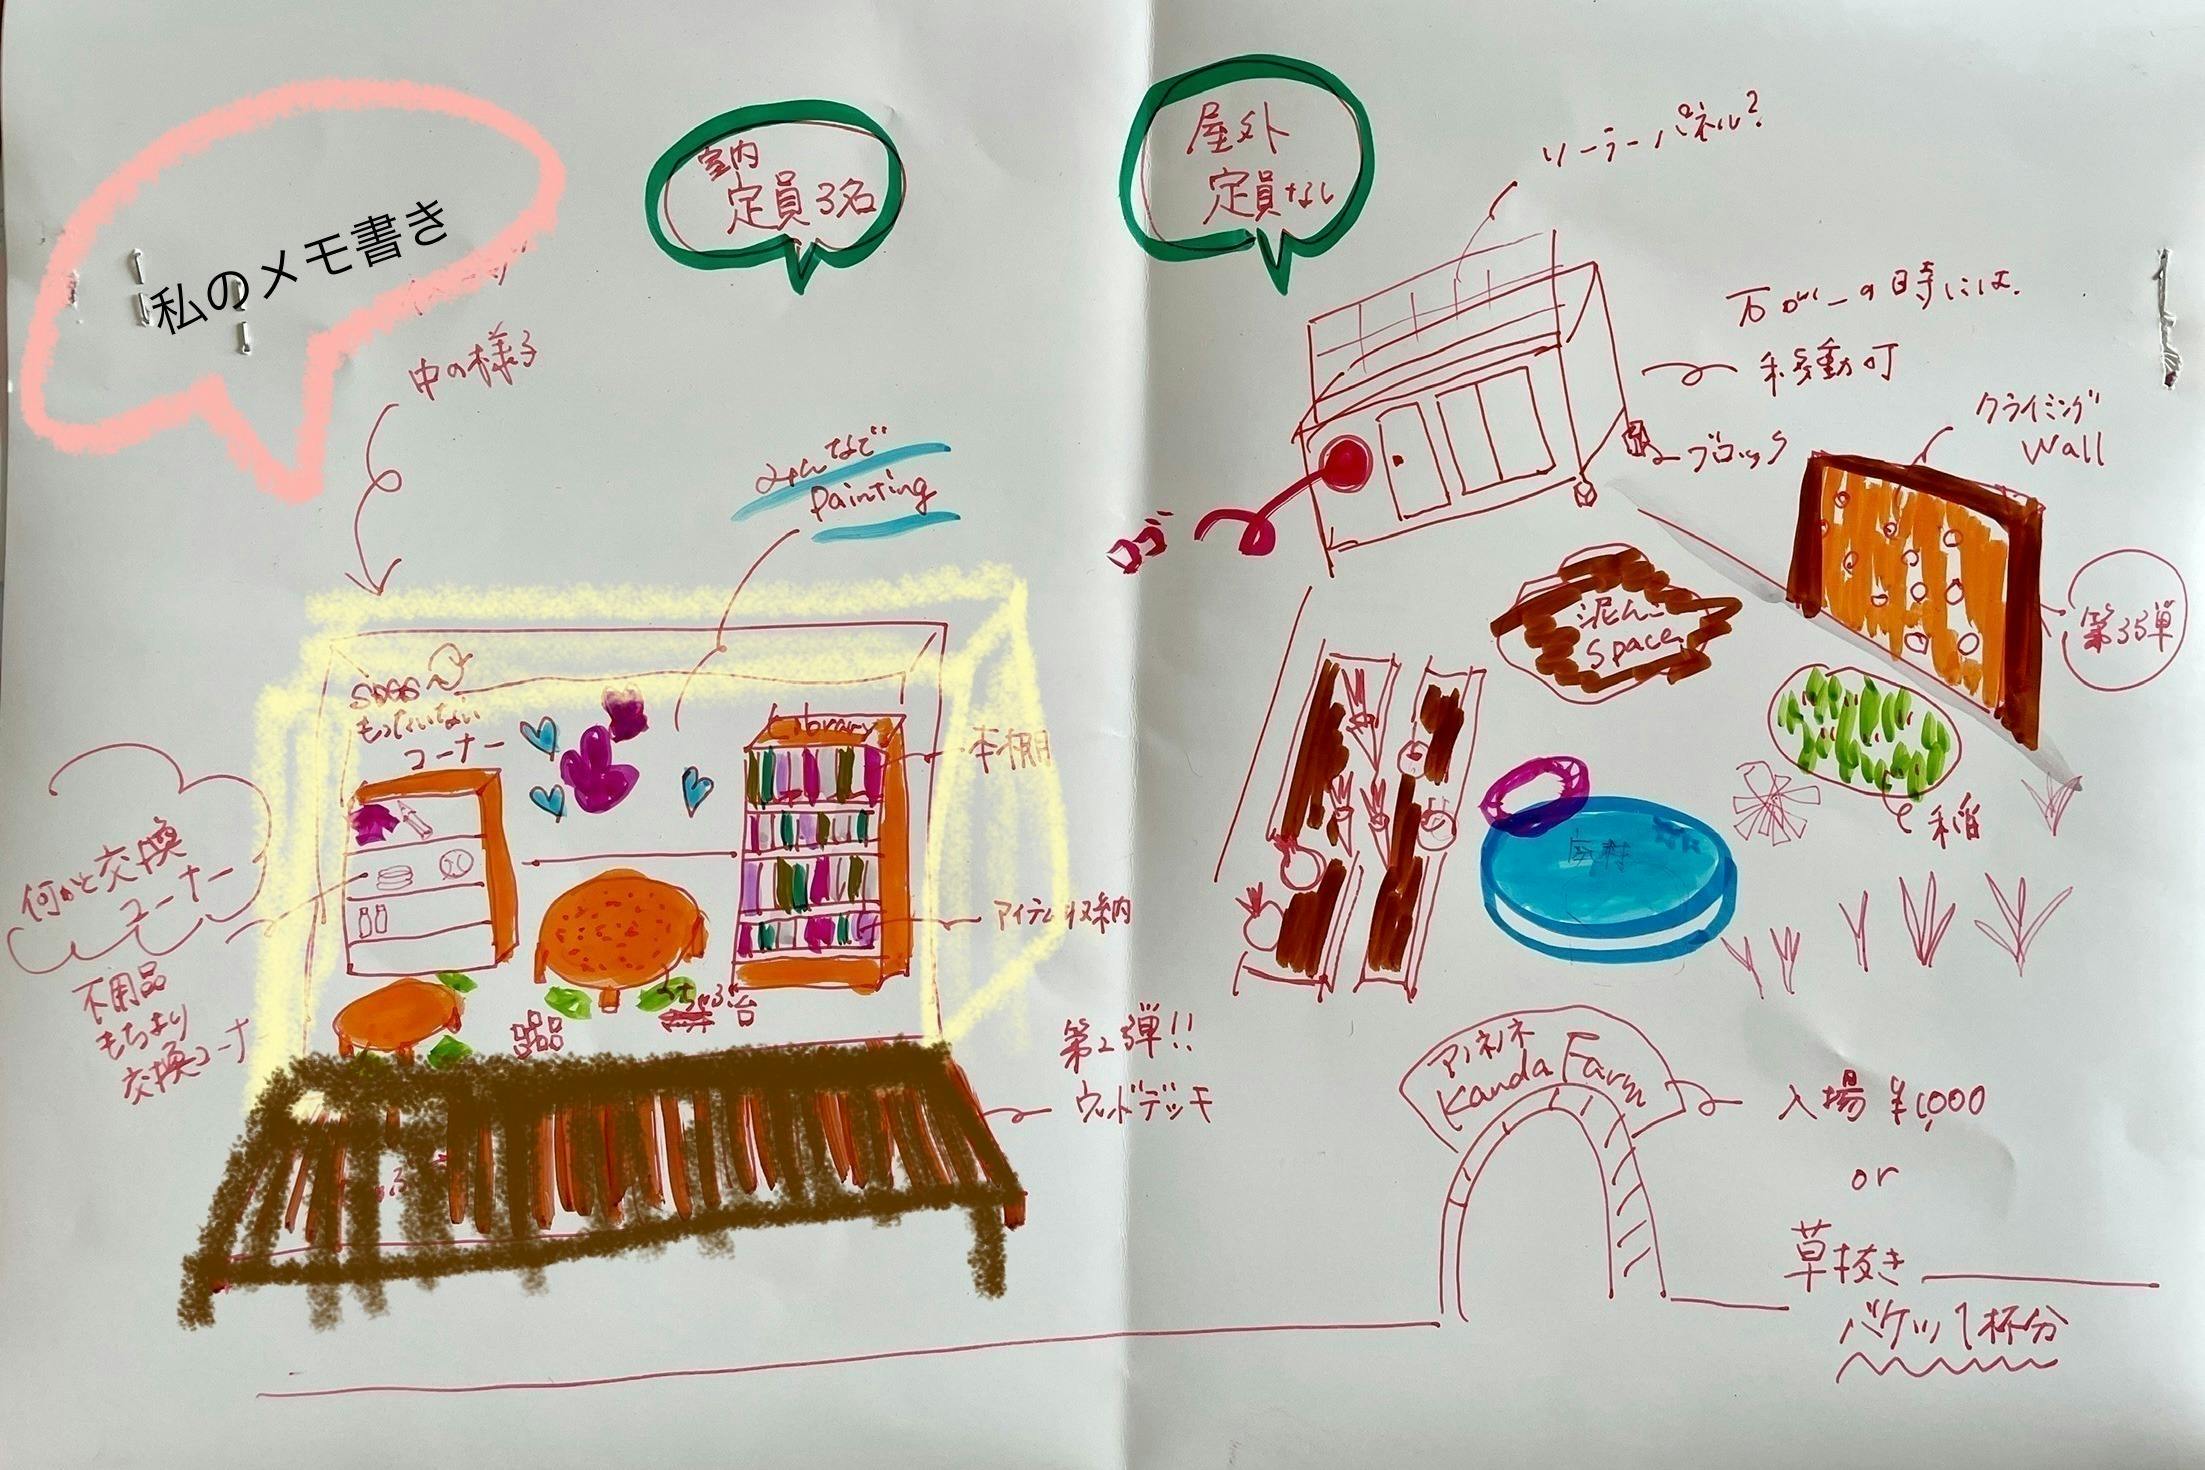 私のメモ書き
中の様子
室内
定員3名
みんなで
Painting
SDGs
もったいない
コーナー
Library
本棚
アイテム収納
何かと交換
コーナー
不用品
もちより
交換コーナー
ちゃぶ台
第2弾!!
ウッドデッキ
屋外
定員なし
ソーラーパネル?
万が一の時には、
移動可
ブロック
ロゴ
クライミング
Wall
第3弾
泥んこ
Space
稲
廃材
Kanda Farm
入場 ¥1,000
or
草抜き
バケツ1杯分